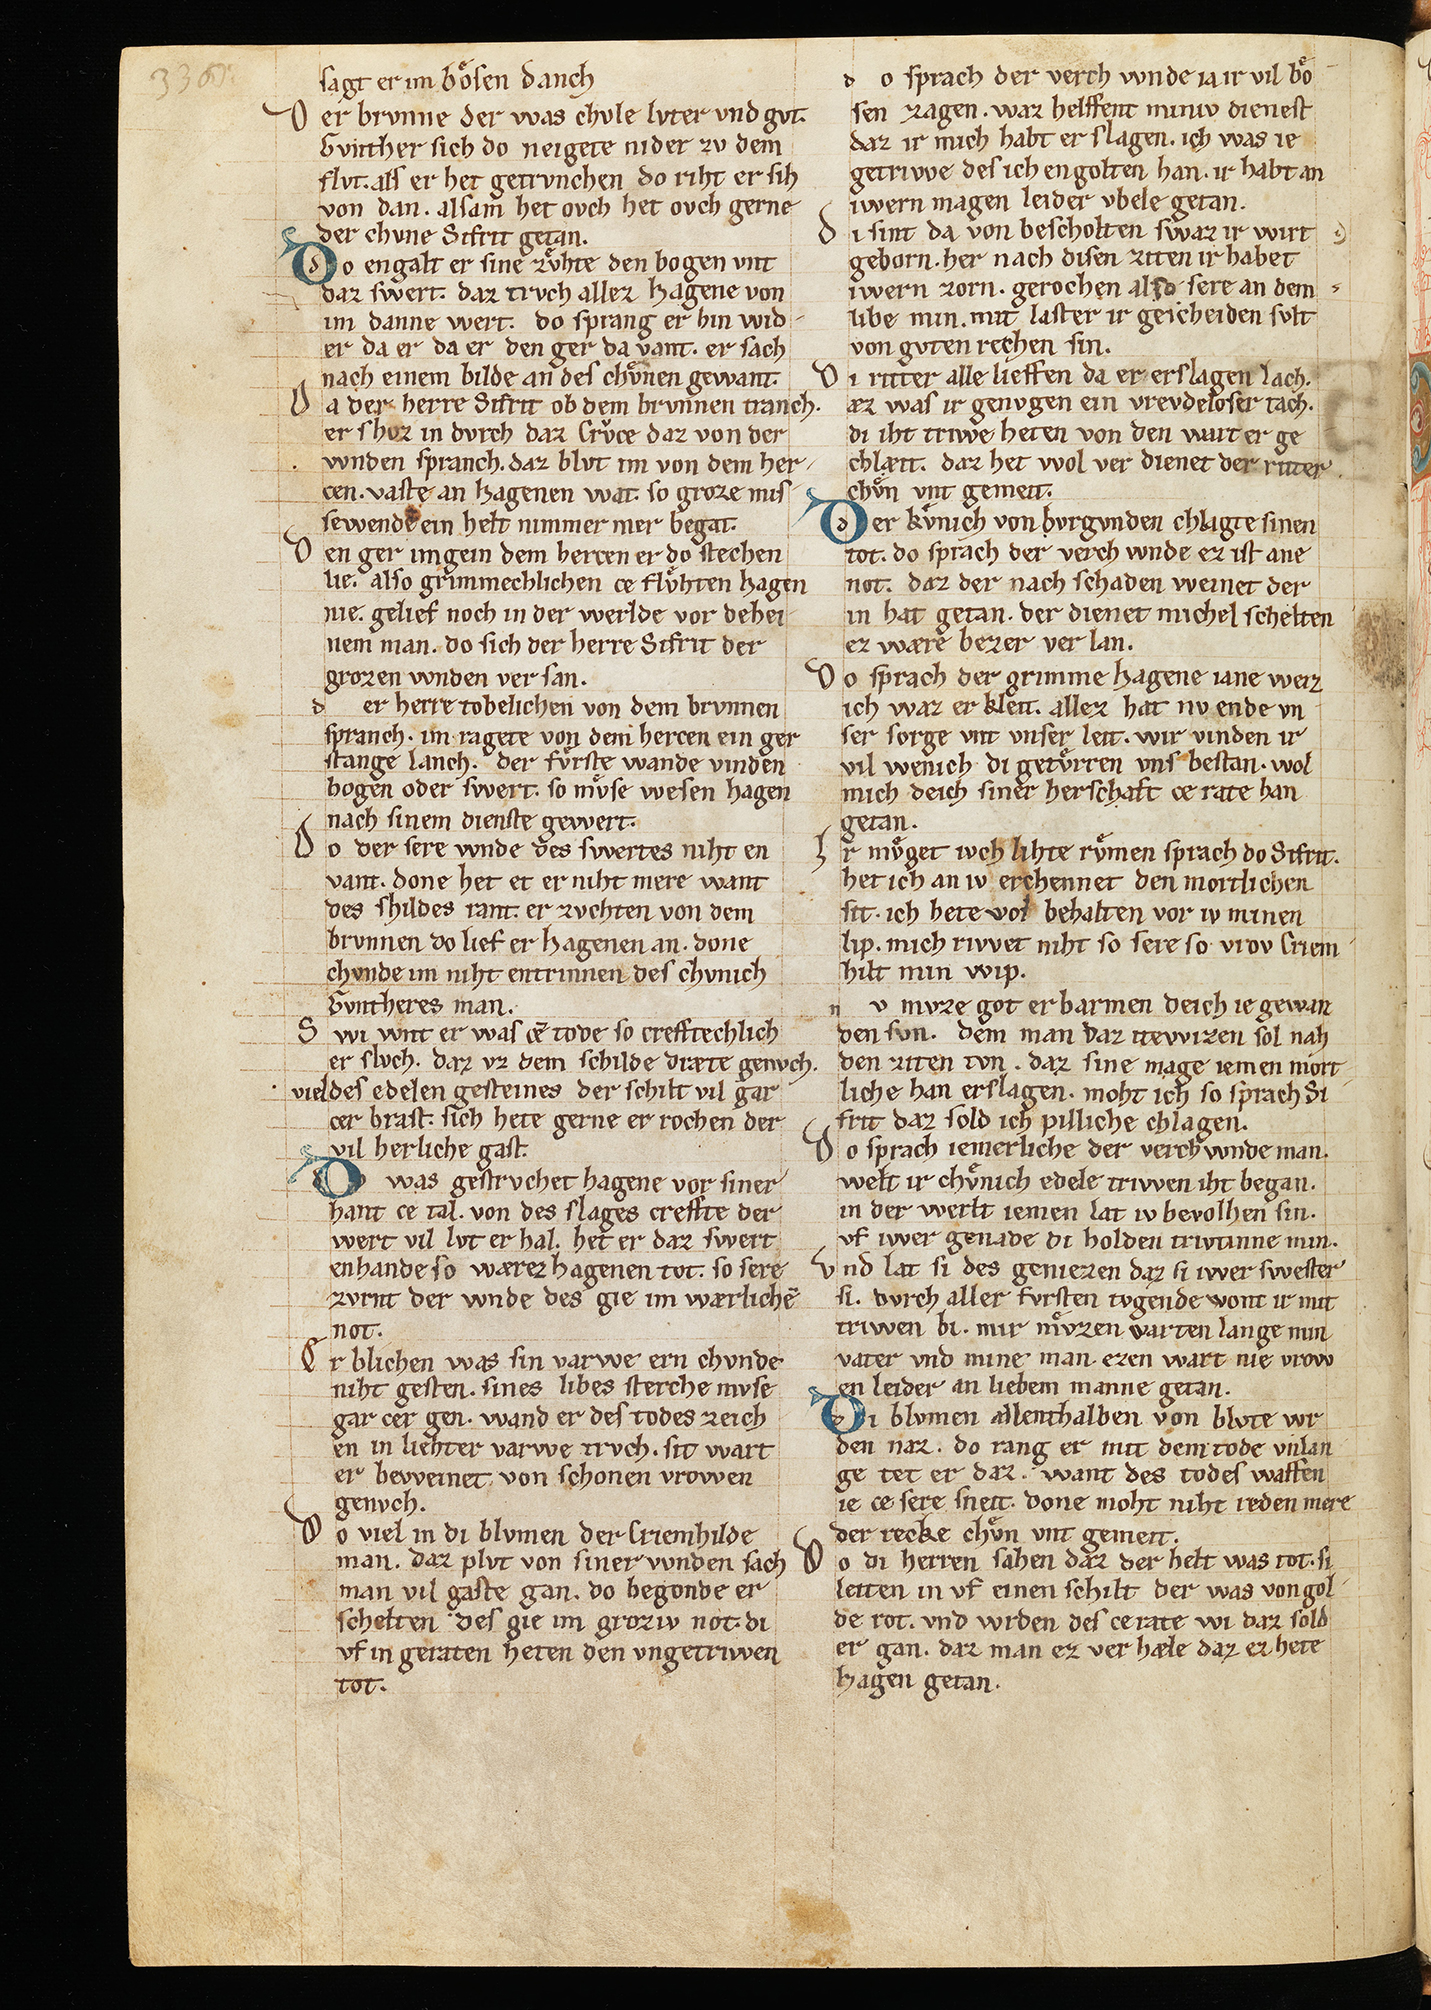 336v
sagt er im boͤsen danch
D er brvnne der was chvle lvter vnd gvt.
Gvnther sich do neigete nider zv dem
flvt. als er het getrvnchen do riht er sih
von dan. alsam het ovch het ovch gerne
der chvne Sifrit getan.
Do engalt er sine zvͦhte den bogen vnt
daz swert. daz trvch allez hagene von
im danne wert. do sprang er hin wid
er da er da er den ger da vant. er sach
nach einem bilde an des chvͤnen gewant.
D a der herre Sifrit ob dem brvnnen tranch.
er shoz in dvrch daz Crvͤce daz von der
wnden spranch. daz blvt im von dem her
cen. vaste an hagenen wat. so groze mis
sewende ein helt nimmer mer begat.
D en ger ingein dem hercen er do stechen
lie. also grimmechlichen ce flvͤhten hagen
nie. gelief noch in der werlde vor dehei
nem man. do sich der herre Sifrit der
grozen wnden ver san.
d er herre tobelichen von dem brvnnen
spranch. im ragete von dem hercen ein ger
stange lanch. der fvͤrste wande vinden
bogen oder swert. so mvͤse wesen hagen
nach sinem dienste gewert.
D o der sere wnde des swertes niht en
vant. done het et er niht mere want
des shildes rant. er zvchten von dem
brvnnen do lief er hagenen an. done
chvnde im niht entrinnen des chvnich
Gvntheres man.
S wi wnt er was ce tode so crefftechlich
er slvch. daz vz dem schilde dræte genvch.
viel des edelen gesteines der schilt vil gar
cer brast. sich hete gerne er rochen der
vil herliche gast.
Do was gestrvchet hagene vor siner
hant ce tal. von des slages creffte der
wert vil lvt er hal. het er daz swert
enhande so wærez hagenen tot. so sere
zvrnt der wnde des gie im wærliche
not.
E r blichen was sin varwe ern chvnde
niht gesten. sines libes sterche mvse
gar cer gen. wand er des todes zeich
en in liehter varwe trvch. sit wart
er beweinet von schonen vrowen
genvch.
D o viel in di blvmen der Criemhilde
man. daz plvt von siner wnden sach
man vil gaste gan. do begonde er
schelten des gie im groziv not. di
vf in geraten heten den vngetriwen
tot.
d o sprach der verch wnde ia ir vil boͤ
sen zagen. waz helffent miniv dienest
daz ir mich habt er slagen. ich was ie
getriwe des ich engolten han. ir habt an
iwern magen leider vbele getan.
d i sint da von bescholten swaz ir wirt
geborn. her nach disen ziten ir habet
iwern zorn. gerochen also sere an dem
libe min. mit laster ir gescheiden svlt
von gvten rechen sin.
D i ritter alle lieffen da er erslagen lach.
æz was ir genvgen ein vrevdeloser tach.
di iht triwe heten von den wart er ge
chlæit. daz het wol ver dienet der ritter
chvͤn vnt gemeit.
Der kvͤnich von bvrgvnden chlagte sinen
tot. do sprach der verch wnde ez ist ane
not. daz der nach schaden weinet der
in hat getan. der dienet michel schelten
ez wære bezer ver lan.
D o sprach der grimme hagene iane weiz
ich waz er kleit. allez hat nv ende vn
ser sorge vnt vnser leit. wir vinden ir
vil wenich di getvͤrren vns bestan. wol
mich deich siner herschaft ce rate han
getan.
I r mvͤget iwch lihte rvͤmen sprach do Sifrit.
het ich an iv erchennet den mortlichen
sit. ich hete wol behalten vor iv minen
lip. mich riwet niht so sere so vrov Criem
hilt min wip.
n v mvze got erbarmen deich ie gewan
den svn. dem man daz itewizen sol nah
den ziten tvn. daz sine mage iemen mort
liche han erslagen. moht ich so sprach Si
frit daz sold ich pilliche chlagen.
D o sprach iemerliche der verch wnde man.
welt ir chvͤnich edele triwen iht began.
in der werlt iemen lat iv bevolhen sin.
vf iwer genade di holden triwtinne min.
V nd lat si des geniezen daz si iwer swester
si. dvrch aller fvrsten tvgende wont ir mit
triwen bi. mir mvͤzen warten lange min
vater vnd mine man. ezen wart nie vrow
en leider an liebem manne getan.
Di blvmen allenthalben von blvte wr
den naz. do rang er mit dem tode vnlan
ge tet er daz. want des todes waffen
ie ce sere sneit. done moht niht reden mere
der recke chvͤn vnt gemeit.
D o di herren sahen daz der helt was tot. si
leiten in vf einen schilt der was von gol
de rot. vnd wrden des ce rate wi daz sold
er gan. daz man ez ver hæle daz ez hete
hagen getan.